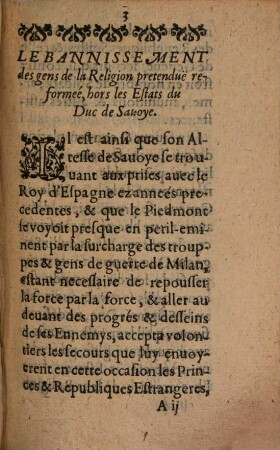 3
LE BANNISSEMENT
des gens de la Religion pretenduë re-
formeé, hors les Estats du
Duc de Savoye.
Il est ainsi que son Al-
tesse de Savoye se trou-
vant aux prises avec le
Roy d'Espagne ez anneés pre-
cedentes, & que le Piedmont
se voyoit presque en peril-emi-
nent par la surcharge des troup-
pes & gens de guerre de Milan,
estant necessaire de repousser
la force par la force, & aller au
devant des progrés & desseins
de ses Ennemys, accepta volon-
tiers les secours que luy envoy-
erent en cette occasion les Prin-
ces & Republiques Estrangeres,
A ij